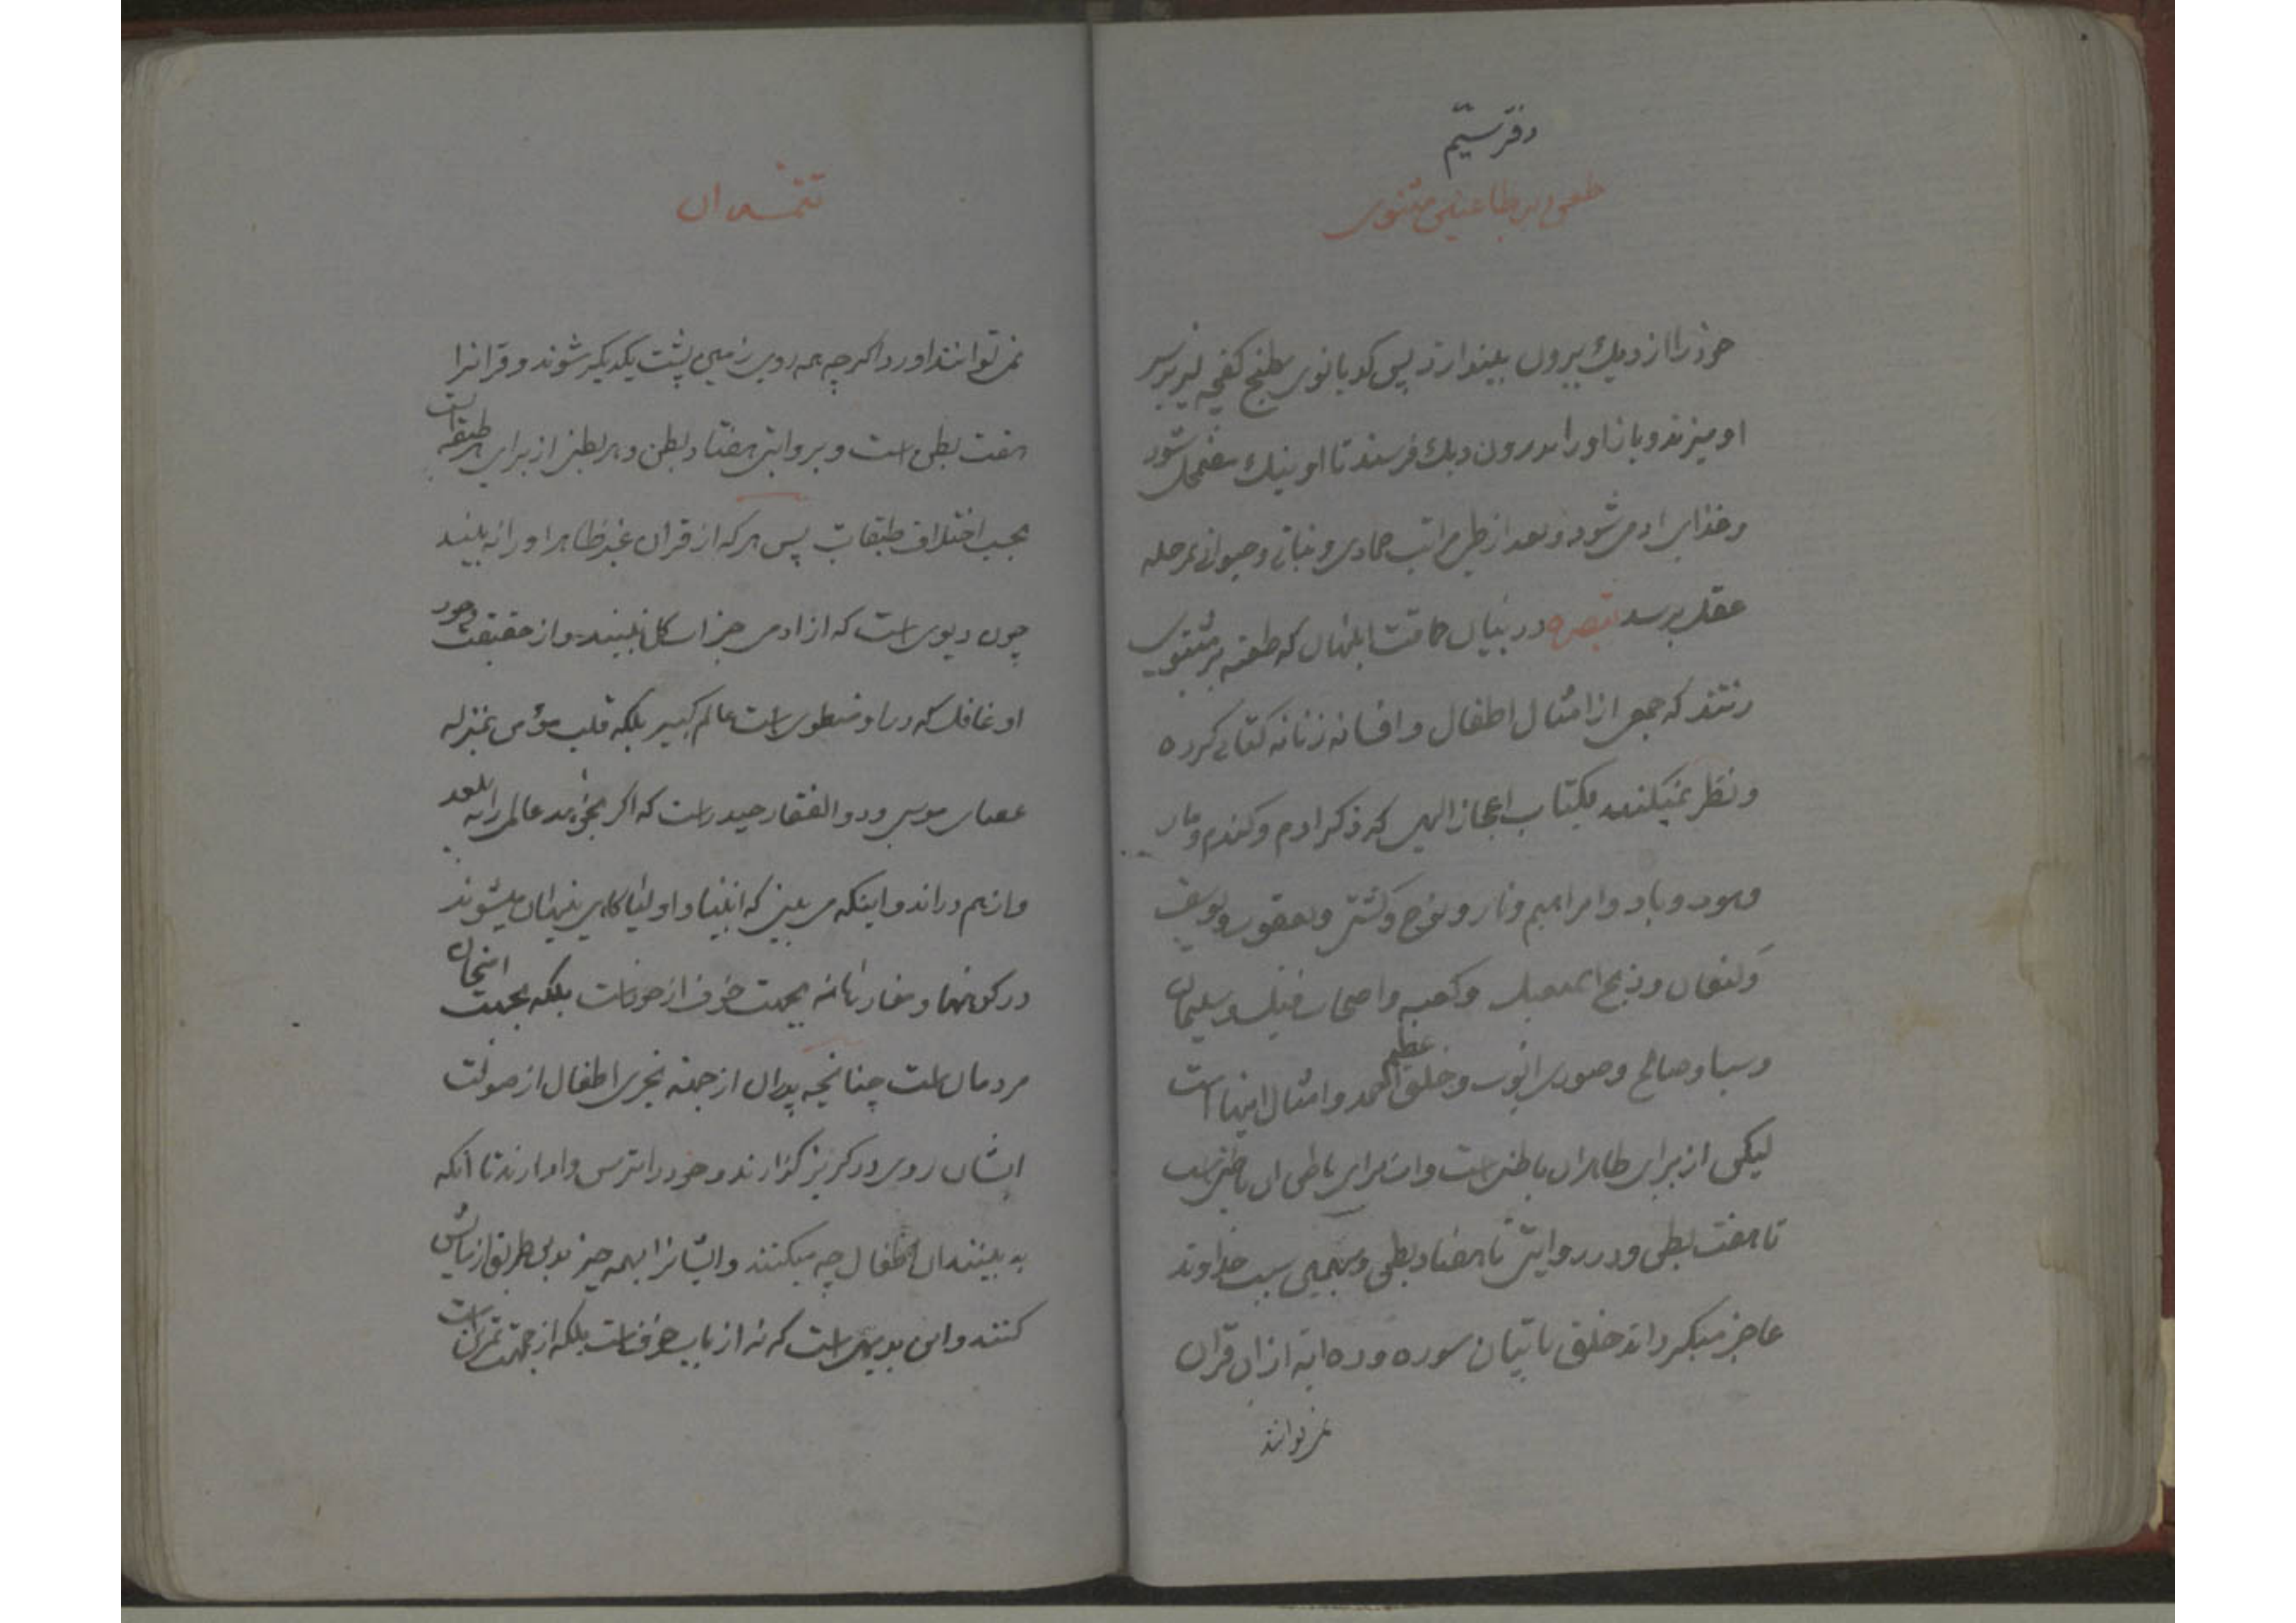 دفتر سیّم
طعن در طاعنین مثنوی
خود را از دیک بیرون میندازند پس کدبانوی مطبخ کفچه لیز بر سر
او میزند و باز او را بدرون دیک فرستد تا او نیک مضمحل شود
و غذای ادمی شود و بعد از طی مراتب جمادی و نباتی و حیوانی بمرحله
عقل برسد تبصره در بیان حماقت ابلهان که طعنه بر مثنوی
زنند که جمعی از امثال اطفال و افسانه زنانه کتابی کرده
و نظر نمیکنند بکتاب اعجاز الهی که ذکر ادم و کندم و مار
و هود و باد و ابراهیم و نار و نوح و کشتی و یعقوب و یوسف
و لقمان و ذبح اسمعیل و کعبه و اصحاب فیل و سلیمان
و سبا و صالح و صبوری ایوب و خلق عظیم محمد و امثال اینها است
لیکن از برای ظاهر ان باطنی است و از برای باطن ان باطنی است
تا هفت بطن و در روایتی تا هفتاد بطن و بهمین سبب خداوند
عاجز میکرداند خلق باتیان سوره و ده ایه از ان قران
نمی‌توانند
تتمه ان
نمی توانند اورد اکرچه همه روی زمین پشت یکدیکر شوند و قرانرا
هفت بطن است و بروایتی هفتاد بطن و هر بطنی از برای هر طبقه است
بحسب اختلاف طبقات پس هرکه از قران غیر ظاهر او را نه بیند
چون دیوی است که از ادمی جز اشکل نبیند و از حقیقت وجود
او غافل که در او منطوی است عالم کبیر بلکه قلب مؤمن بمنزله
عصای موسی و ذوالفقار حیدر است که اکر بخواهد عالمی را به بلعد
و از هم دراند و اینکه می بینی که انبیا و اولیا کاهی پنهان میشوند
در کوهها و غارها نه بجهت خوف از خود است بلکه بجهت امتحان
مردمان است چنانچه پدران از جهة تجری اطفال از صولت
ایشان روی در کریز کذارند و خود را بترس وادارند تا انکه
به بینند ان اطفال چه میکنند و ایشانرا بهمه چیز بدین طریق ازمایش
کنند و این بدیهی است که نه از باب خوف است بلکه از جهت تمرین است